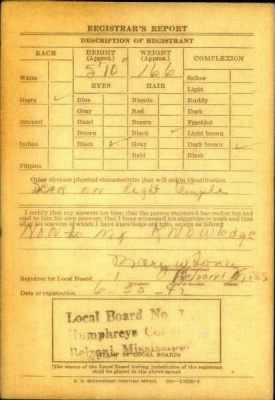 REGISTRAR'S REPORT
DESCRIPTION OF REGISTRANT
RACE HEIGHT (Approx.) WEIGHT (Approx.) COMPLEXION
White 5'10" 166 Sallow
EYES HAIR Light
Negro ✓ Blue Blonde Ruddy
Gray Red Dark
Oriental Hazel Brown Freckled
Brown Black ✓ Light brown
Indian Black ✓ Gray Dark brown ✓
Bald Black
Filipino
Other obvious physical characteristics that will aid in identification
SCAR ON Right Temple
I certify that my answers are true; that the person registered has read or has had
read to him his own answers; that I have witnessed his signature or mark and that
all of his answers of which I have knowledge are true, except as follows:
NON to my KNOWledge
Registrar for Local Board 1 Belzoni Miss
Date of registration 6-30-
Local Board No.
Humphreys
Belzoni, Mississippi
(STAMP OF LOCAL BOARD)
(The stamp of the Local Board having jurisdiction of the registrant
shall be placed in the above space)
U. S. GOVERNMENT PRINTING OFFICE